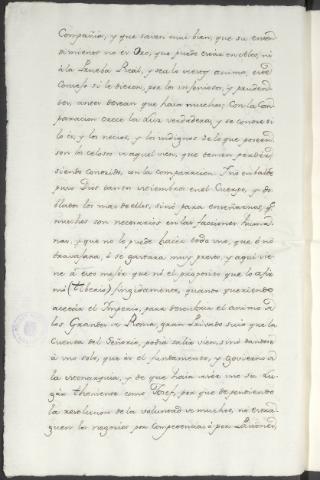 Compañia, y que saven mui bien, que su enten
dimiento no es Oro, que puede entrar en ellos, ni
à la Prueba Real, y sea lo viereys animo, este
Consejo si le dieren, por la infeniosos, y pruden
tes, antes desean que haia muchos; Con la Com
paracion crece la luz verdadera, y se conoce si
lo es, y los necios, y los indignos de lo que poseen
son los celosos de aquel vien, que temen perder,
siendo conocidos, con la comparacion. I no en balde
puso Dios tantos miembros en el Cuerpo, y do
blados los mas de ellos, sinó para enseñarnos, q.e
muchos son necesarios en las facciones huma
nas, y que no lo puede hacer todo uno, que ô no
travajara, ô se gastara muy presto, y aqui vie
ne â esto mejor que ni el proposito que lo afir
mò (Tiberio) fingidamente, quando queriendo
acectar el Imperio, para descubrir el animo a
los Grandes de Roma, gran Privado suio que la
Cuenta del Señorio, podia salir vien, sinó dandose
â uno solo, que es el fundamento, y Govierno de
la Monarquia, y de que haia uno en su Lu
gar theniente como Josef, por que dependiendo
la resolucion de la voluntad de muchos, no se tra
guen los negocios por competencias, ô por Pasiones,